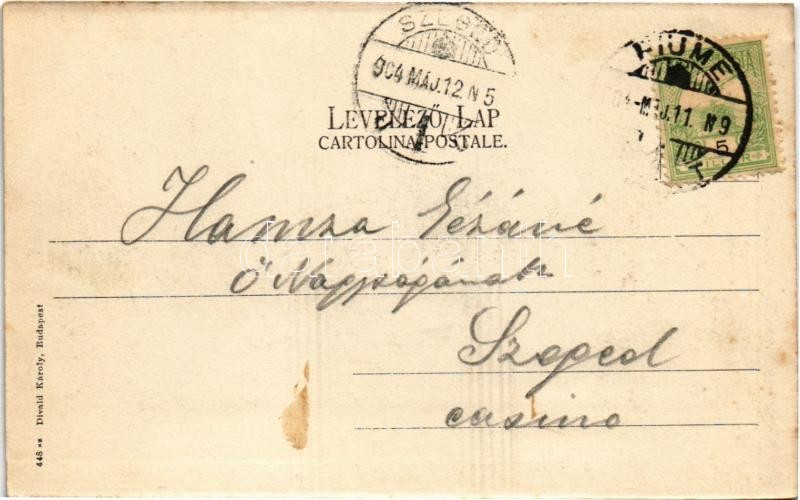 SZEGED
904 MÁJ. 12. N 5
1
FIUME
904 MÁJ. 11 N 9
5
FILLÉR
LEVELEZŐ LAP
CARTOLINA POSTALE.
Hamza Gézáné
Ő Nagyságának
Szeged
casino
448 Divald Károly, Budapest
darabanth